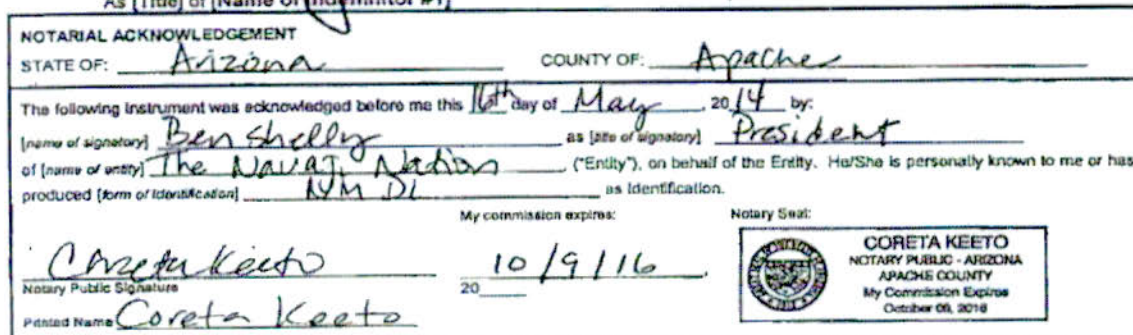 As [Title] of [Name of Indemnitor #1]
NOTARIAL ACKNOWLEDGEMENT
STATE OF: Arizona COUNTY OF: Apache
The following instrument was acknowledged before me this 16th day of May, 2014 by:
[name of signatory] Ben Shelly as [title of signatory] President
of [name of entity] The Navajo Nation ("Entity"), on behalf of the Entity. He/She is personally known to me or has
produced [form of identification] NM DL as identification.
My commission expires: Notary Seal:
Coreta Keeto 10/9/16
Notary Public Signature 20
Printed Name Coreta Keeto
CORETA KEETO
NOTARY PUBLIC - ARIZONA
APACHE COUNTY
My Commission Expires
October 09, 2016